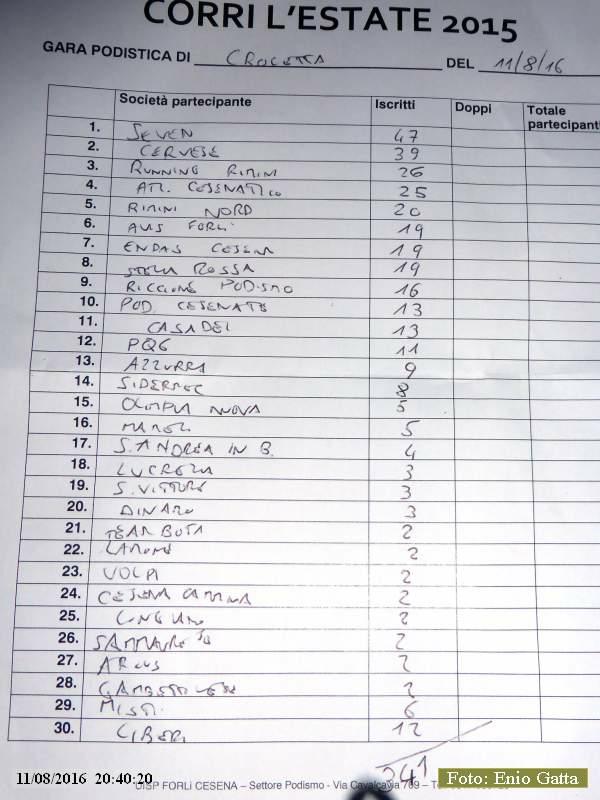 CORRI L'ESTATE 2015
GARA PODISTICA DI CROCETTA DEL 11/8/16
Società partecipante Iscritti Doppi Totale partecipanti
1. SEVEN 47
2. CERVESE 39
3. RUNNING RIMINI 26
4. ATL. CESENATICO 25
5. RIMINI NORD 20
6. AVIS FORLI' 19
7. ENDAS CESENA 19
8. STELLA ROSSA 19
9. RICCIONE PODISMO 16
10. POD. CESENATE 13
11. CASADEI 13
12. PQG 11
13. AZZURRA 9
14. SIDERMEC 8
15. OLIMPIA NUOVA 5
16. 5
17. S. ANDREA IN B. 4
18. LUCREZIA 3
19. S. VITTORE 3
20. DINAMO 3
21. TEAM BOTA 2
22. LAMONE 2
23. VOLPI 2
24. CESENA CAMMINA 2
25. 2
26. 2
27. ARCUS 2
28. GAMBETTOLESE 2
29. MISTI 6
30. LIBERI 12
341
UISP FORLÌ CESENA – Settore Podismo - Via Cavalcavia 709 –
11/08/2016 20:40:20
Foto: Enio Gatta